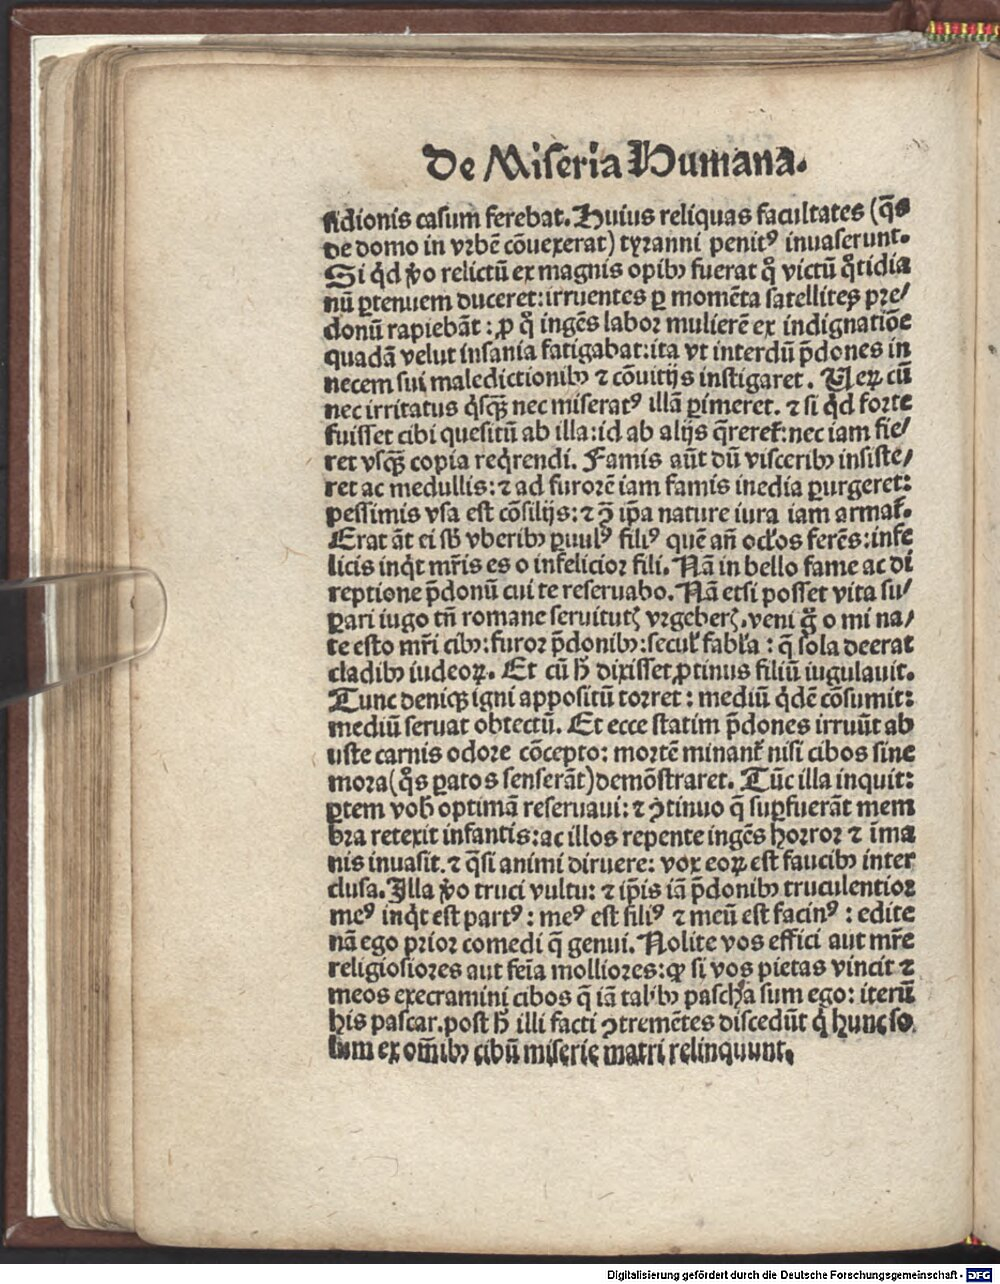 De Miseria Humana.
sidionis casum ferebat. Huius reliquas facultates (q̄s
de domo in vrbē cōuexerat) tyranni penitꝰ inuaserunt.
Si qd̓ ꝟo relictū ex magnis opibꝫ fuerat q̊ victū q̊tidia
nū ꝑtenuem duceret: irruentes ꝑ momēta satellites pre/
donū rapiebāt: ꝓ q̊ ingēs labor mulierē ex indignatiōe
quadā velut insania fatigabat: ita vt interdū p̄dones in
necem sui maledictionibꝫ ⁊ cōuitijs instigaret. Ueꝝ cū
nec irritatus q̓sqꝫ̄ nec miseratꝰ illā ꝑimeret. ⁊ si qd̓ forte
fuisset cibi quesitū ab illa: id ab alijs q̄reret᷑: nec iam fie/
ret vsqꝫ̄ copia req̓rendi. Famis aūt dū visceribꝫ insiste/
ret ac medullis: ⁊ ad furorē iam famis inedia ꝑurgeret:
pessimis vsa est cōsilijs: ⁊ ꝯ̄ ip̄a nature iura iam armat᷑.
Erat āt ei sb̓ vberibꝫ ꝑuulꝰ filiꝰ quē añ oc̓los ferēs: infe
licis inq̓t mr̄is es o infelicior fili. Nā in bello fame ac di
reptione p̄donū cui te reseruabo. Nā etsi posset vita su/
ꝑari iugo tn̄ romane seruitutꝭ vrgeberꝭ. veni g̊ o mi na/
te esto mr̄i cibꝫ: furor p̄donibꝫ: secul̓ fabl̓a: q̄ sola deerat
cladibꝫ iudeoꝝ. Et cū h̓ dixisset ꝓtinus filiū iugulauit.
Tunc deniqꝫ igni appositū torret: mediū q̓dē cōsumit:
mediū seruat obtectū. Et ecce statim p̄dones irruūt ab
uste carnis odore cōcepto: mortē minant᷑ nisi cibos sine
mora (q̊s ꝑatos senserāt) demōstraret. Tūc illa inquit:
ꝑtem vob̓ optimā reseruaui: ⁊ ꝯtinuo q̄ suꝑfuerāt mem
bra retexit infantis: ac illos repente ingēs horror ⁊ īma
nis inuasit. ⁊ q̄si animi diruere: vox eoꝝ est faucibꝫ inter
clusa. Illa ꝟo truci vultu: ⁊ ip̄is iā p̄donibꝫ truculentior
meꝰ inq̓t est partꝰ: meꝰ est filiꝰ ⁊ meū est facinꝰ: edite
nā ego prior comedi q̄ genui. Nolite vos effici aut mr̄e
religiosiores aut fēia molliores: ꝙ si vos pietas vincit ⁊
meos execramini cibos q̄ iā talibꝫ pasch̓a sum ego: iterū
his pascar. post h̓ illi facti ꝯtremētes discedūt q̓ hunc so
lum ex om̄ibꝫ cibū miserie matri relinquunt.
Digitalisierung gefördert durch die Deutsche Forschungsgemeinschaft - DFG